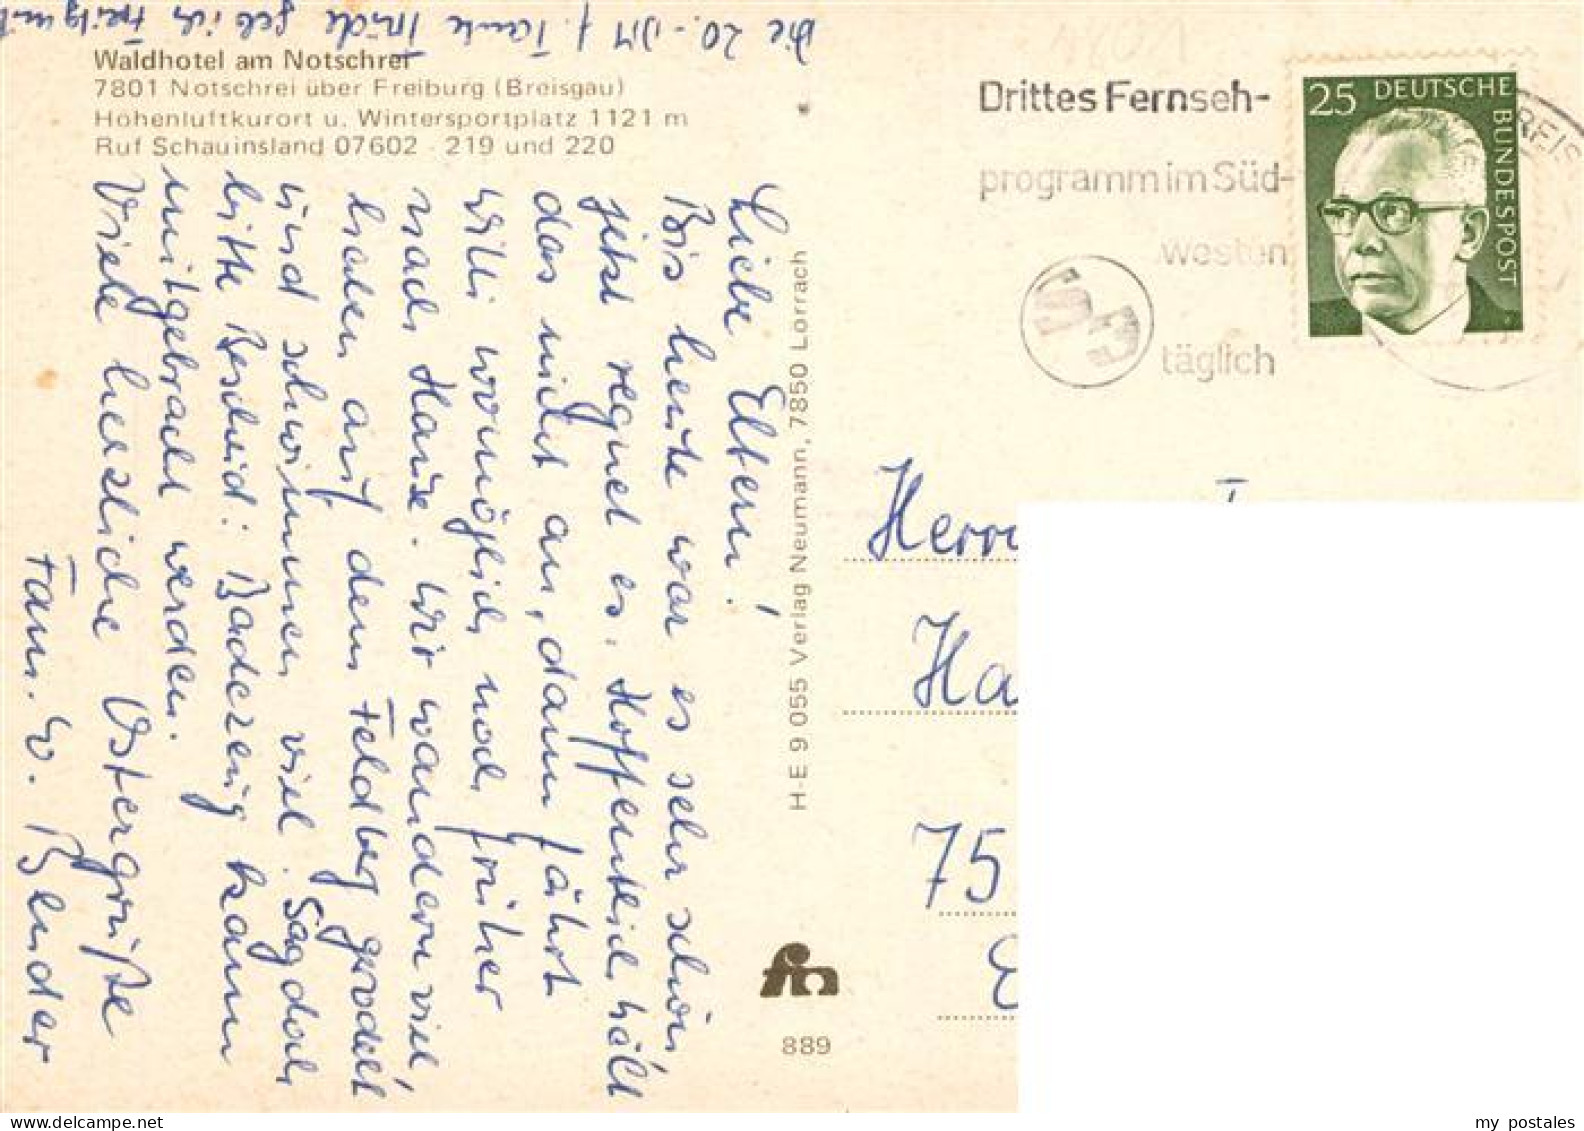 Die 20.-DM f. Tante Trude geb ich Freitg mit
Waldhotel am Notschrei
7801 Notschrei über Freiburg (Breisgau)
Höhenluftkurort u. Wintersportplatz 1121 m
Ruf Schauinsland 07602 - 219 und 220
Liebe Eltern!
Bis heute war es sehr schön
jetzt regnet es. Hoffentlich hält
das nicht an, dann fährt
Willi womöglich noch früher
nach Hause. Wir wandern viel,
haben auf dem Feldberg gerodelt
und schwimmen viel. Sag doch
bitte Bescheid: Badezeug kann
mitgebracht werden.
Viele herzliche Ostergrüße
Fam. W. Bender
H-E 9 055 Verlag Neumann, 7850 Lörrach
fin
889
Drittes Fernseh-
programm im Süd-
westen
täglich
S3
25 DEUTSCHE BUNDESPOST
REIS
Herrn
Ha
75
my postales